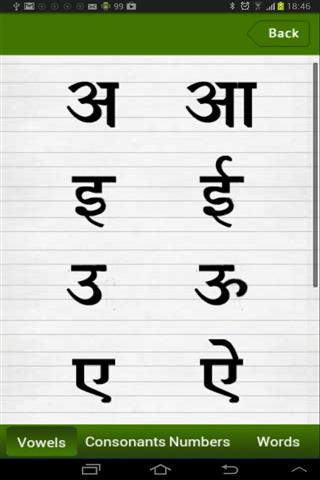 99 18:46
Back
अ आ
इ ई
उ ऊ
ए ऐ
Vowels Consonants Numbers Words